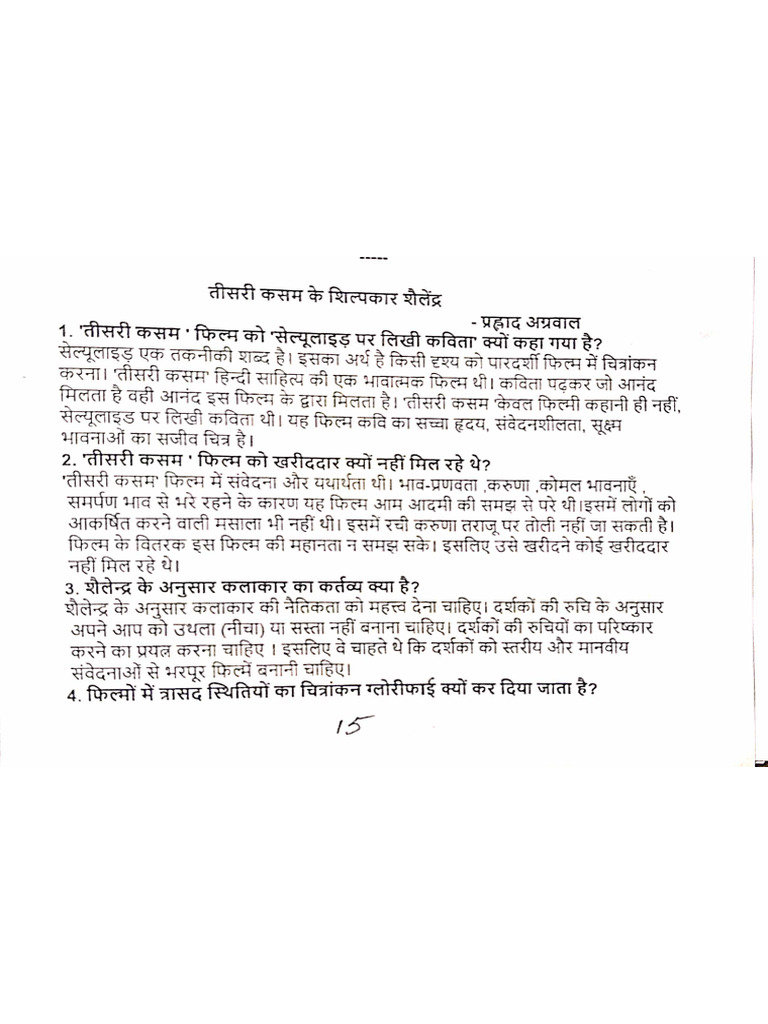 -----
तीसरी कसम के शिल्पकार शैलेंद्र
- प्रह्लाद अग्रवाल
1. 'तीसरी कसम ' फिल्म को 'सेल्यूलाइड़ पर लिखी कविता' क्यों कहा गया है?
सेल्यूलाइड़ एक तकनीकी शब्द है। इसका अर्थ है किसी दृश्य को पारदर्शी फिल्म में चित्रांकन
करना। 'तीसरी कसम' हिन्दी साहित्य की एक भावात्मक फिल्म थी। कविता पढ़कर जो आनंद
मिलता है वही आनंद इस फिल्म के द्वारा मिलता है। 'तीसरी कसम 'केवल फिल्मी कहानी ही नहीं,
सेल्यूलाइड पर लिखी कविता थी। यह फिल्म कवि का सच्चा हृदय, संवेदनशीलता, सूक्ष्म
भावनाओं का सजीव चित्र है।
2. 'तीसरी कसम ' फिल्म को खरीददार क्यों नहीं मिल रहे थे?
'तीसरी कसम' फिल्म में संवेदना और यथार्थता थी। भाव-प्रणवता ,करुणा ,कोमल भावनाएँ ,
समर्पण भाव से भरे रहने के कारण यह फिल्म आम आदमी की समझ से परे थी।इसमें लोगों को
आकर्षित करने वाली मसाला भी नहीं थी। इसमें रची करुणा तराजू पर तोली नहीं जा सकती है।
फिल्म के वितरक इस फिल्म की महानता न समझ सके। इसलिए उसे खरीदने कोई खरीददार
नहीं मिल रहे थे।
3. शैलेन्द्र के अनुसार कलाकार का कर्तव्य क्या है?
शैलेन्द्र के अनुसार कलाकार की नैतिकता को महत्त्व देना चाहिए। दर्शकों की रुचि के अनुसार
अपने आप को उथला (नीचा) या सस्ता नहीं बनाना चाहिए। दर्शकों की रुचियों का परिष्कार
करने का प्रयत्न करना चाहिए । इसलिए वे चाहते थे कि दर्शकों को स्तरीय और मानवीय
संवेदनाओं से भरपूर फिल्में बनानी चाहिए।
4. फिल्मों में त्रासद स्थितियों का चित्रांकन ग्लोरीफाई क्यों कर दिया जाता है?
15